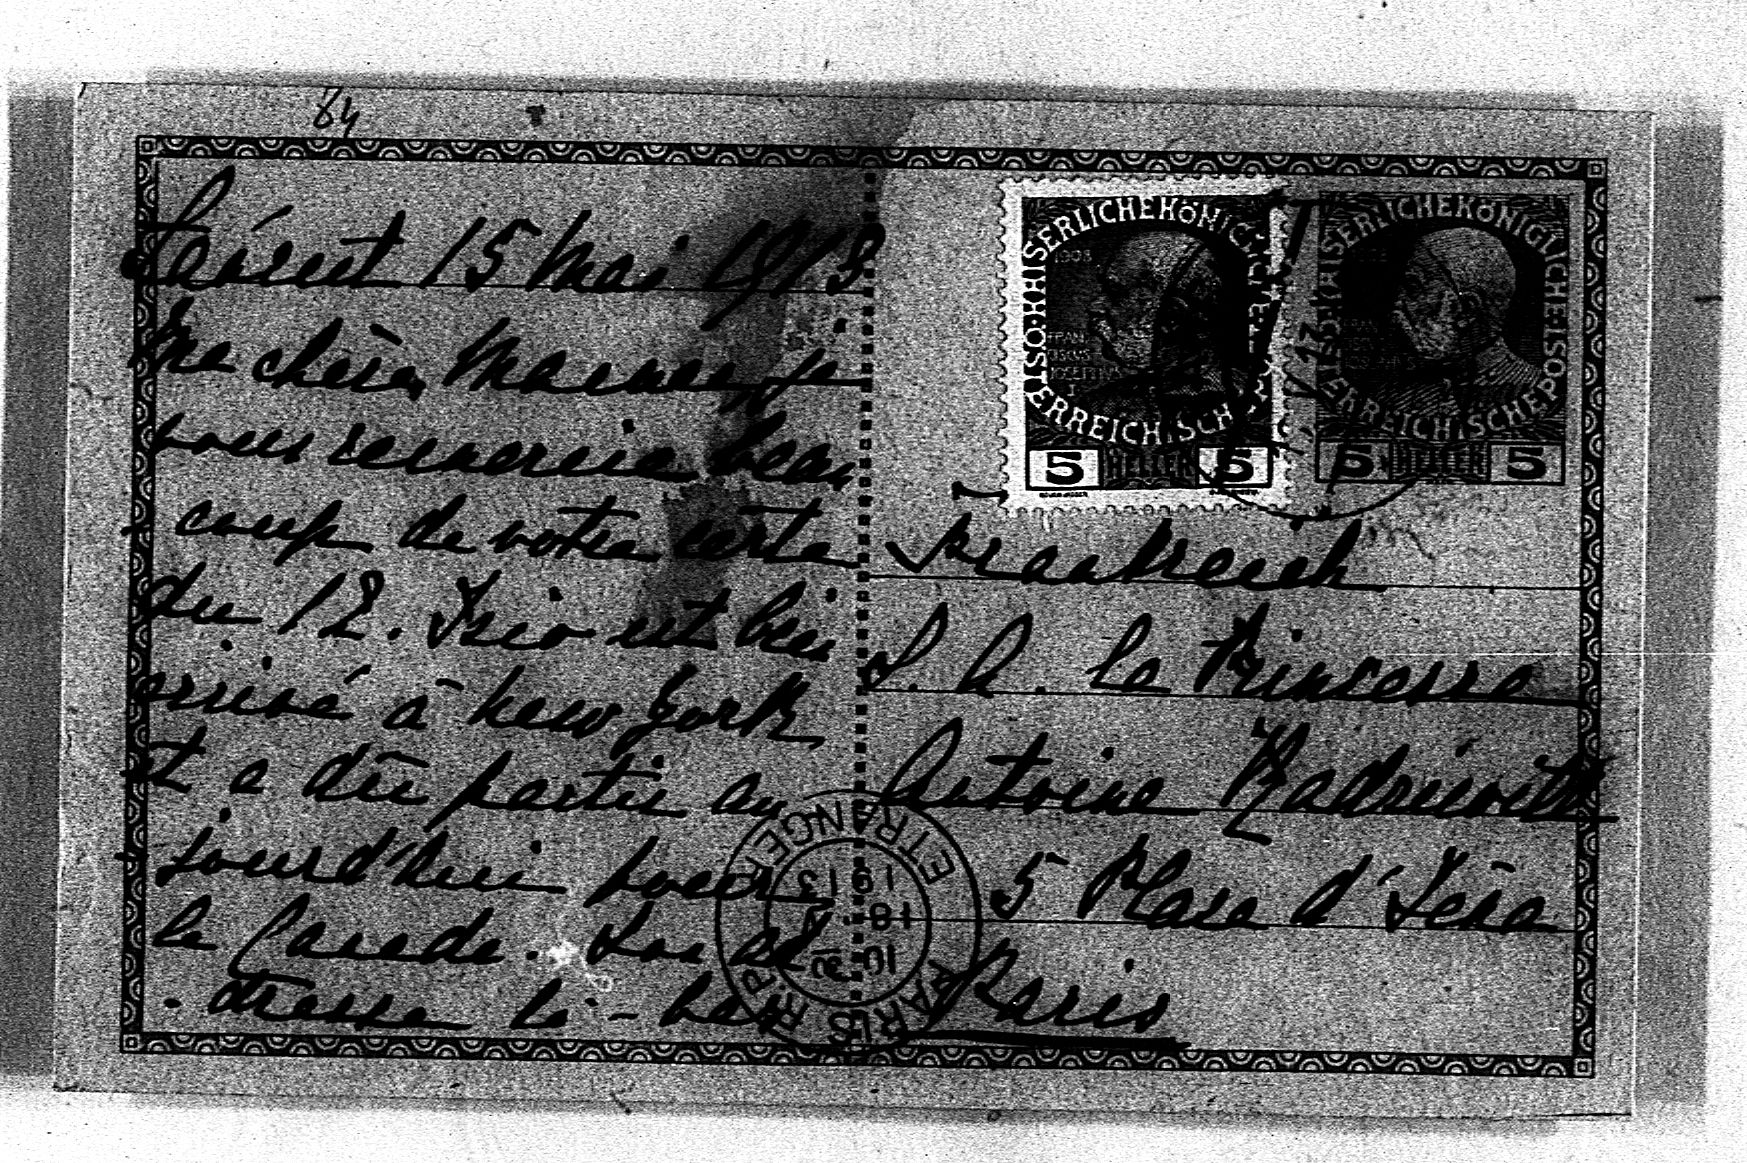 84
Łańcut 15 Mai 1913
Ma chère Maman, je
vous remercie beau
coup de votre carte
du 12. Fritz est bien
arrivé à New York
et a dû partir au
jourd'hui pour
le Canada. Son ad
dresse là-bas
KAISERLICHE KÖNIGLICHE
ÖSTERREICHISCHE POST
5 HELLER 5
KAISERLICHE KÖNIGLICHE
ÖSTERREICHISCHE POST
5 HELLER 5
Frankreich
S. A. la Princesse
Antoine Radziwill
5 Place d'Iéna
Paris
PARIS R.P.
ETRANGER
10
18
1913